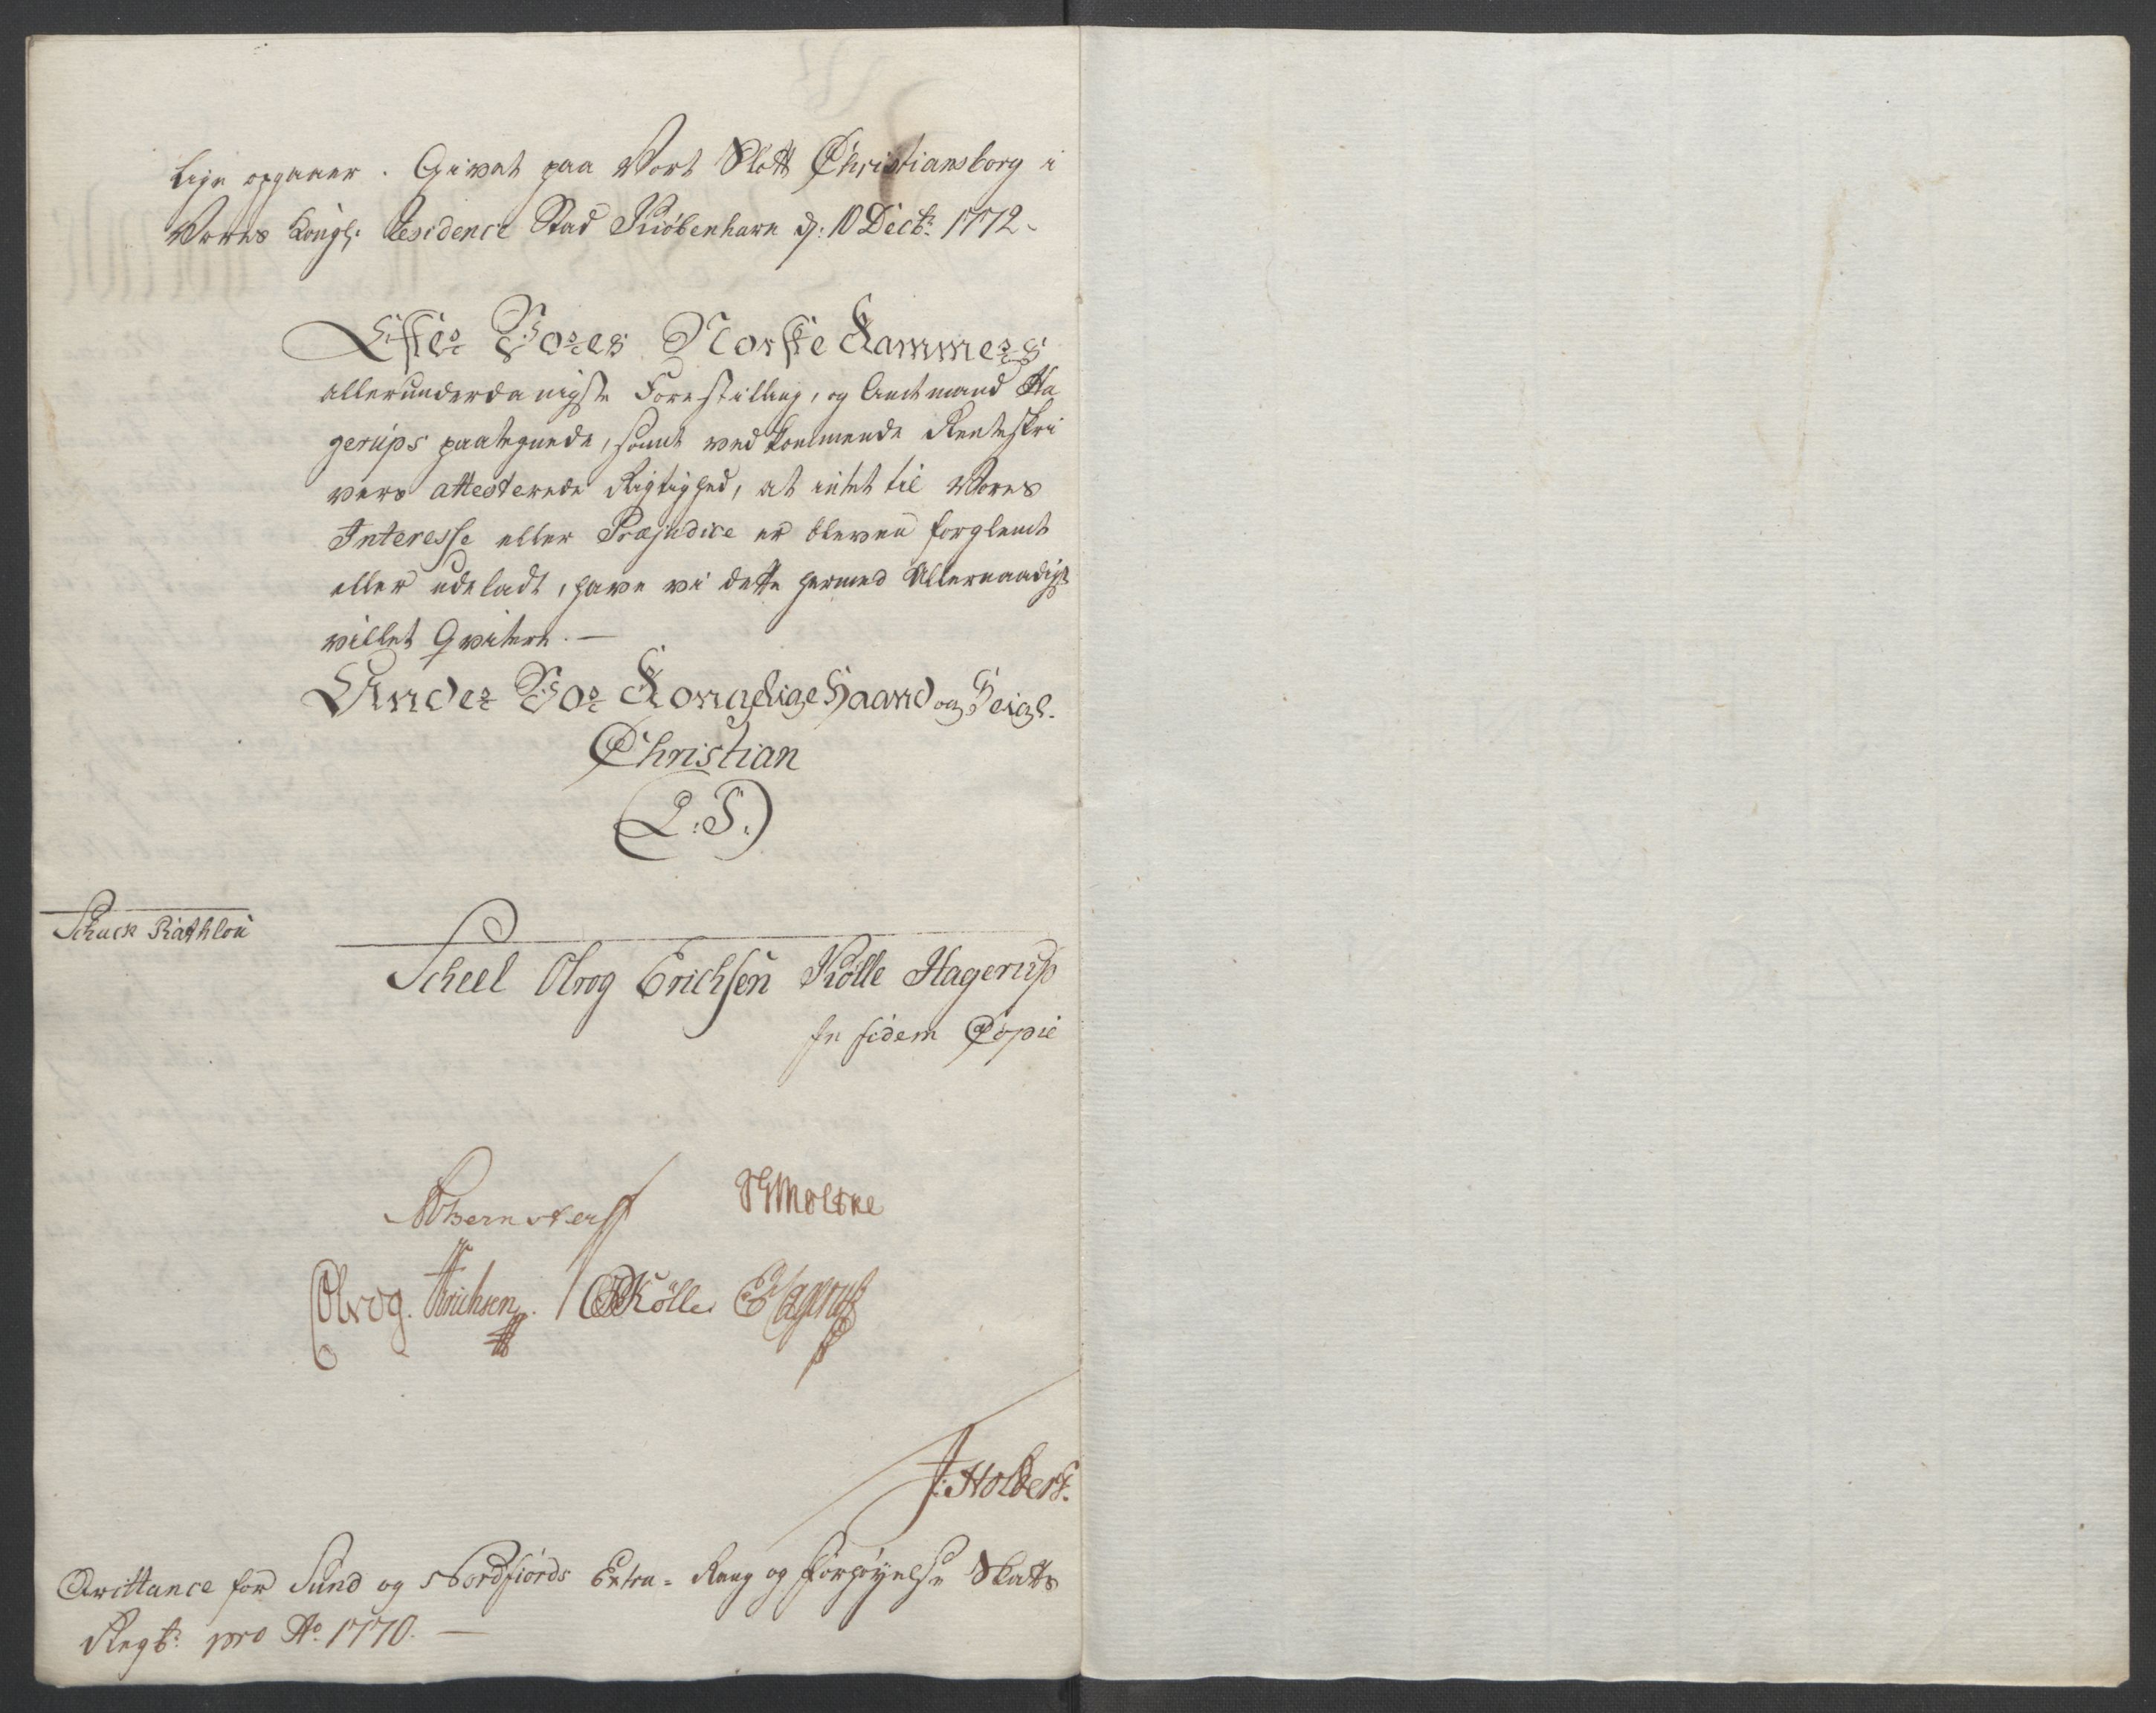 lige opgaaer. Givet paa Vort Slott Christiansborg i
Vores Kongl: Residence Stad Kiöbenhavn d: 10 Decbr: 1772.
Efter Vores Norske Kammers
allerunderdanigste Forestilling, og Amtmand Ha
gerups paategnede, samt vedkommende Renteskri
vers attesterede Rigtighed, at intet til Vores
Interesse eller Præjudice er bleven forglemt
eller udeladt, have vi dette hermed Allernaadigst
villet Qvitere. —
Under Vor Kongelige Haand og Seigl.
Christian
(L: S:)
Schack Rathlou
Scheel Olrog Erichsen Kölle Hagerup
In fidem Copiæ
Bernstorff
Moltke
Olrog. Erichsen. Kölle. Hagerup
J: Holbers.
Qvittance for Sund og Nordfiords Extra- Rang og Forhöyelse Skatts
Regsk: pro Ao: 1770. —